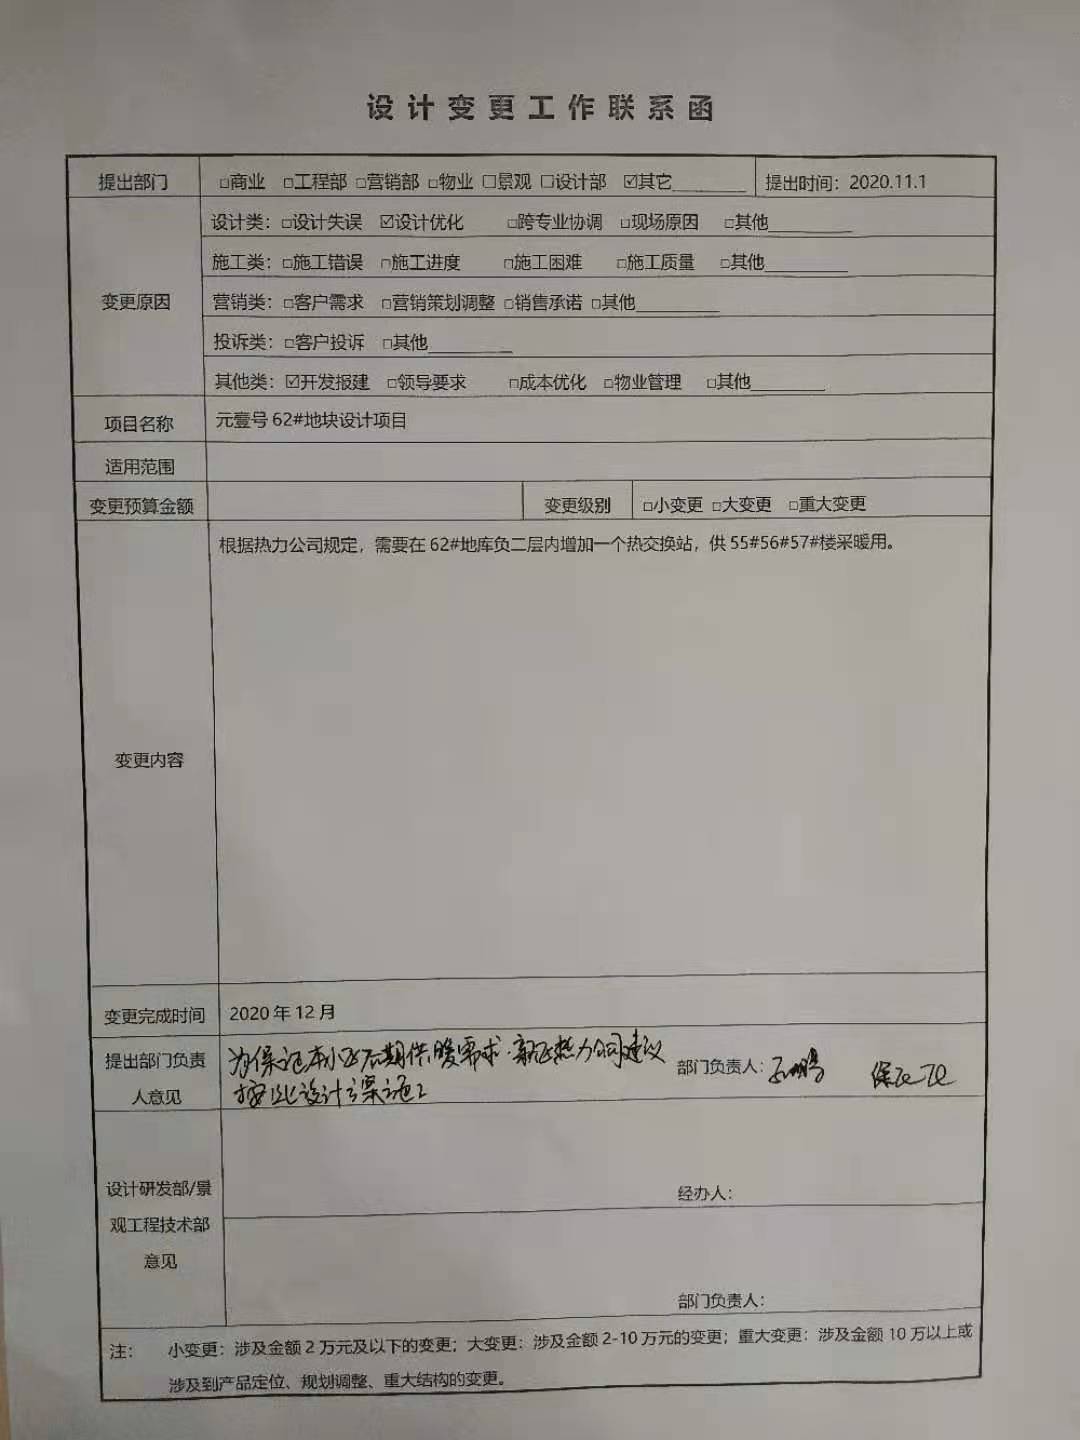 设计变更工作联系函
提出部门 □商业 □工程部 □营销部 □物业 □景观 □设计部 ☑其它________ 提出时间：2020.11.1
变更原因
设计类：□设计失误 ☑设计优化 □跨专业协调 □现场原因 □其他________
施工类：□施工错误 □施工进度 □施工困难 □施工质量 □其他________
营销类：□客户需求 □营销策划调整 □销售承诺 □其他________
投诉类：□客户投诉 □其他________
其他类：☑开发报建 □领导要求 □成本优化 □物业管理 □其他________
项目名称 元壹号62#地块设计项目
适用范围
变更预算金额 变更级别 □小变更 □大变更 □重大变更
变更内容
根据热力公司规定，需要在62#地库负二层内增加一个热交换站，供55#56#57#楼采暖用。
变更完成时间 2020年12月
提出部门负责
人意见
为保证本小区后期供暖需求，热力公司建议
按此设计 施工
部门负责人：
设计研发部/景
观工程技术部
意见
经办人：
部门负责人：
注： 小变更：涉及金额2万元及以下的变更；大变更：涉及金额2-10万元的变更；重大变更：涉及金额10万以上或
涉及到产品定位、规划调整、重大结构的变更。